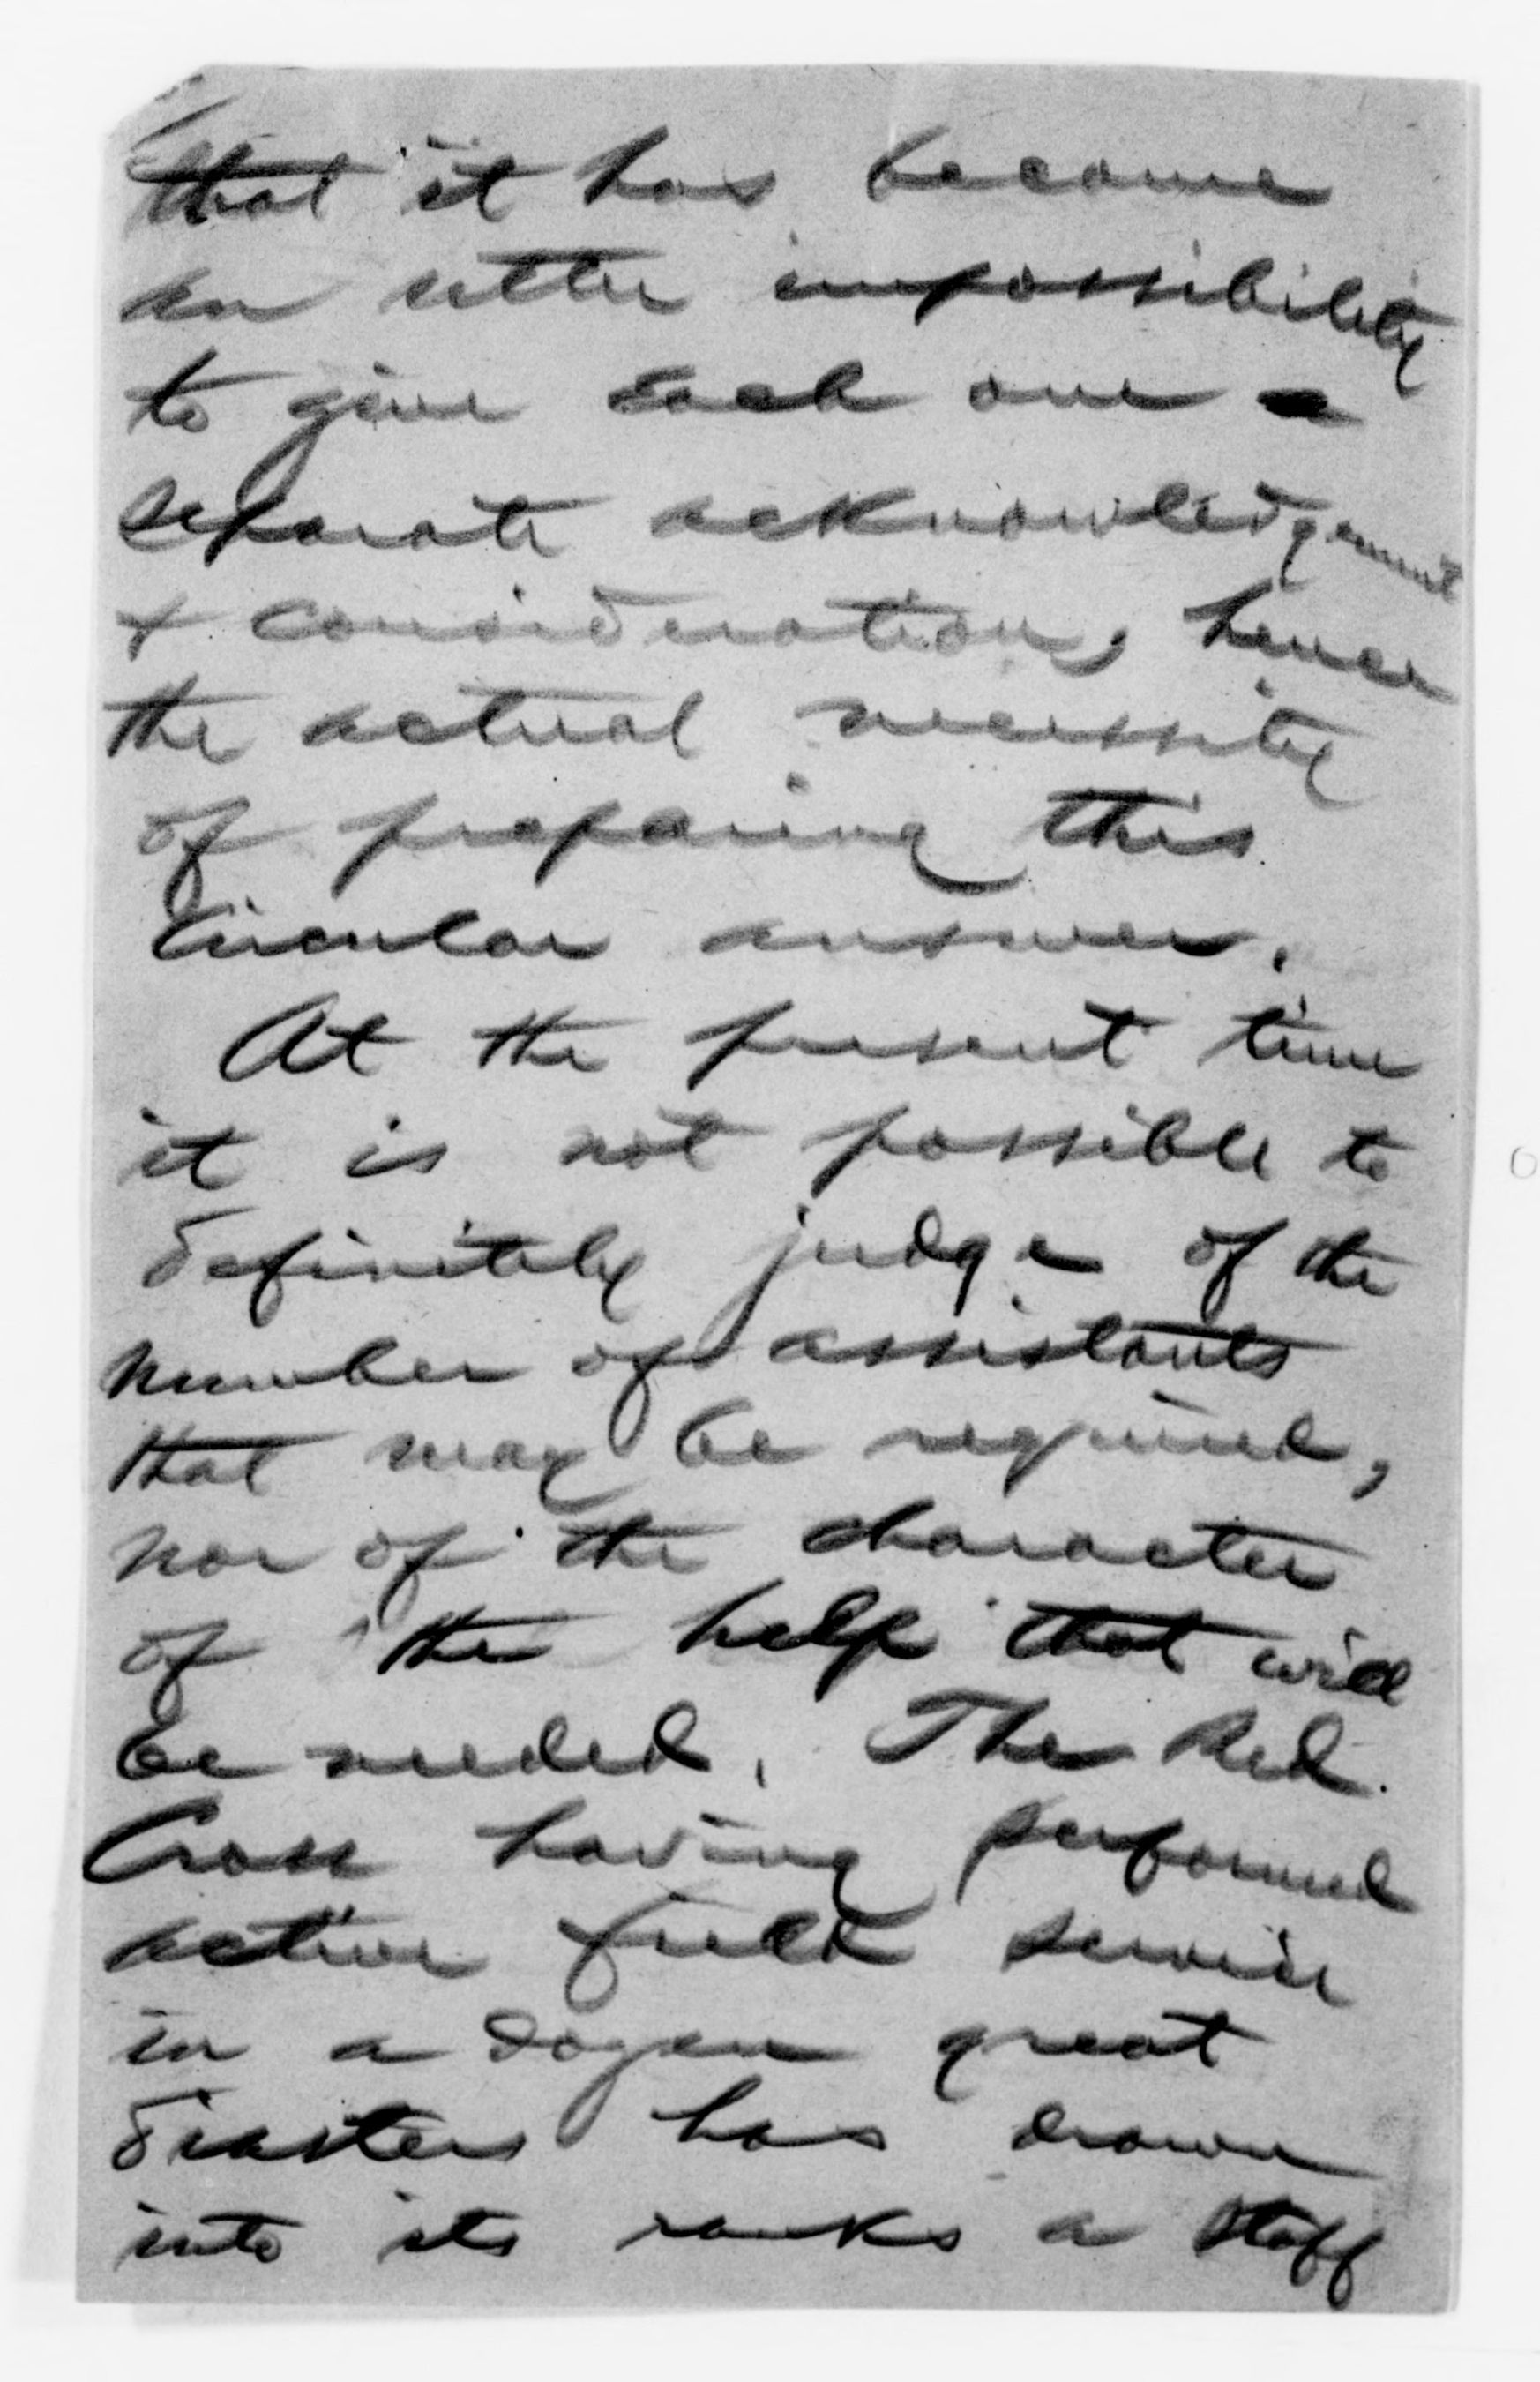 that it has become
an utter impossibility
to give each one a
separate acknowledgement
& consideration, hence
the actual necessity
of preparing this
Circular answer.
At the present time
it is not possible to
definitely judge of the
number of assistants
that may be required,
nor of the character
of the help that will
be needed. The Red
Cross having performed
active field service
in a dozen great
disasters has drawn
into its ranks a staff